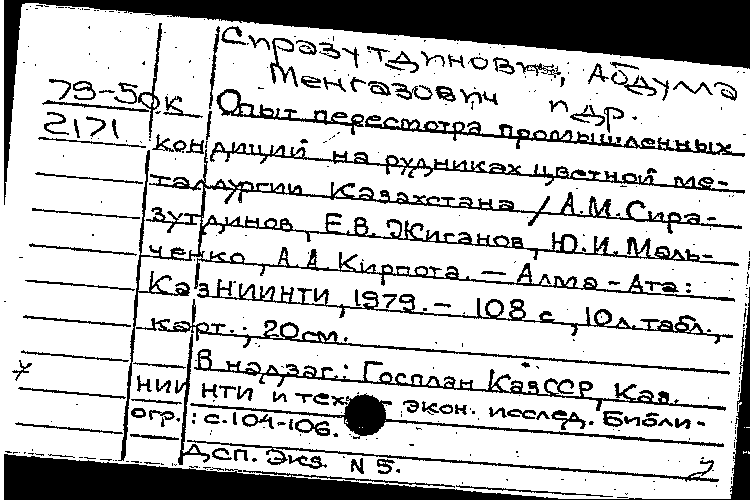 Сиразутдинов, Абдума
Менгазович и др.
79-50к Опыт пересмотра промышленных
2171 кондиций на рудниках цветной ме-
таллургии Казахстана / А.М. Сира-
зутдинов, Е.В. Жиганов, Ю.И. Маль-
ченко, А.А. Кирпота. — Алма-Ата:
КазНИИНТИ, 1979. — 108 с., 10 л. табл.,
карт.; 20 см.
В надзаг.: Госплан КазССР, Каз.
НИИ НТИ и тех - экон. исслед. Библи-
огр.: с. 104-106.
Дсп. Экз. N 5.